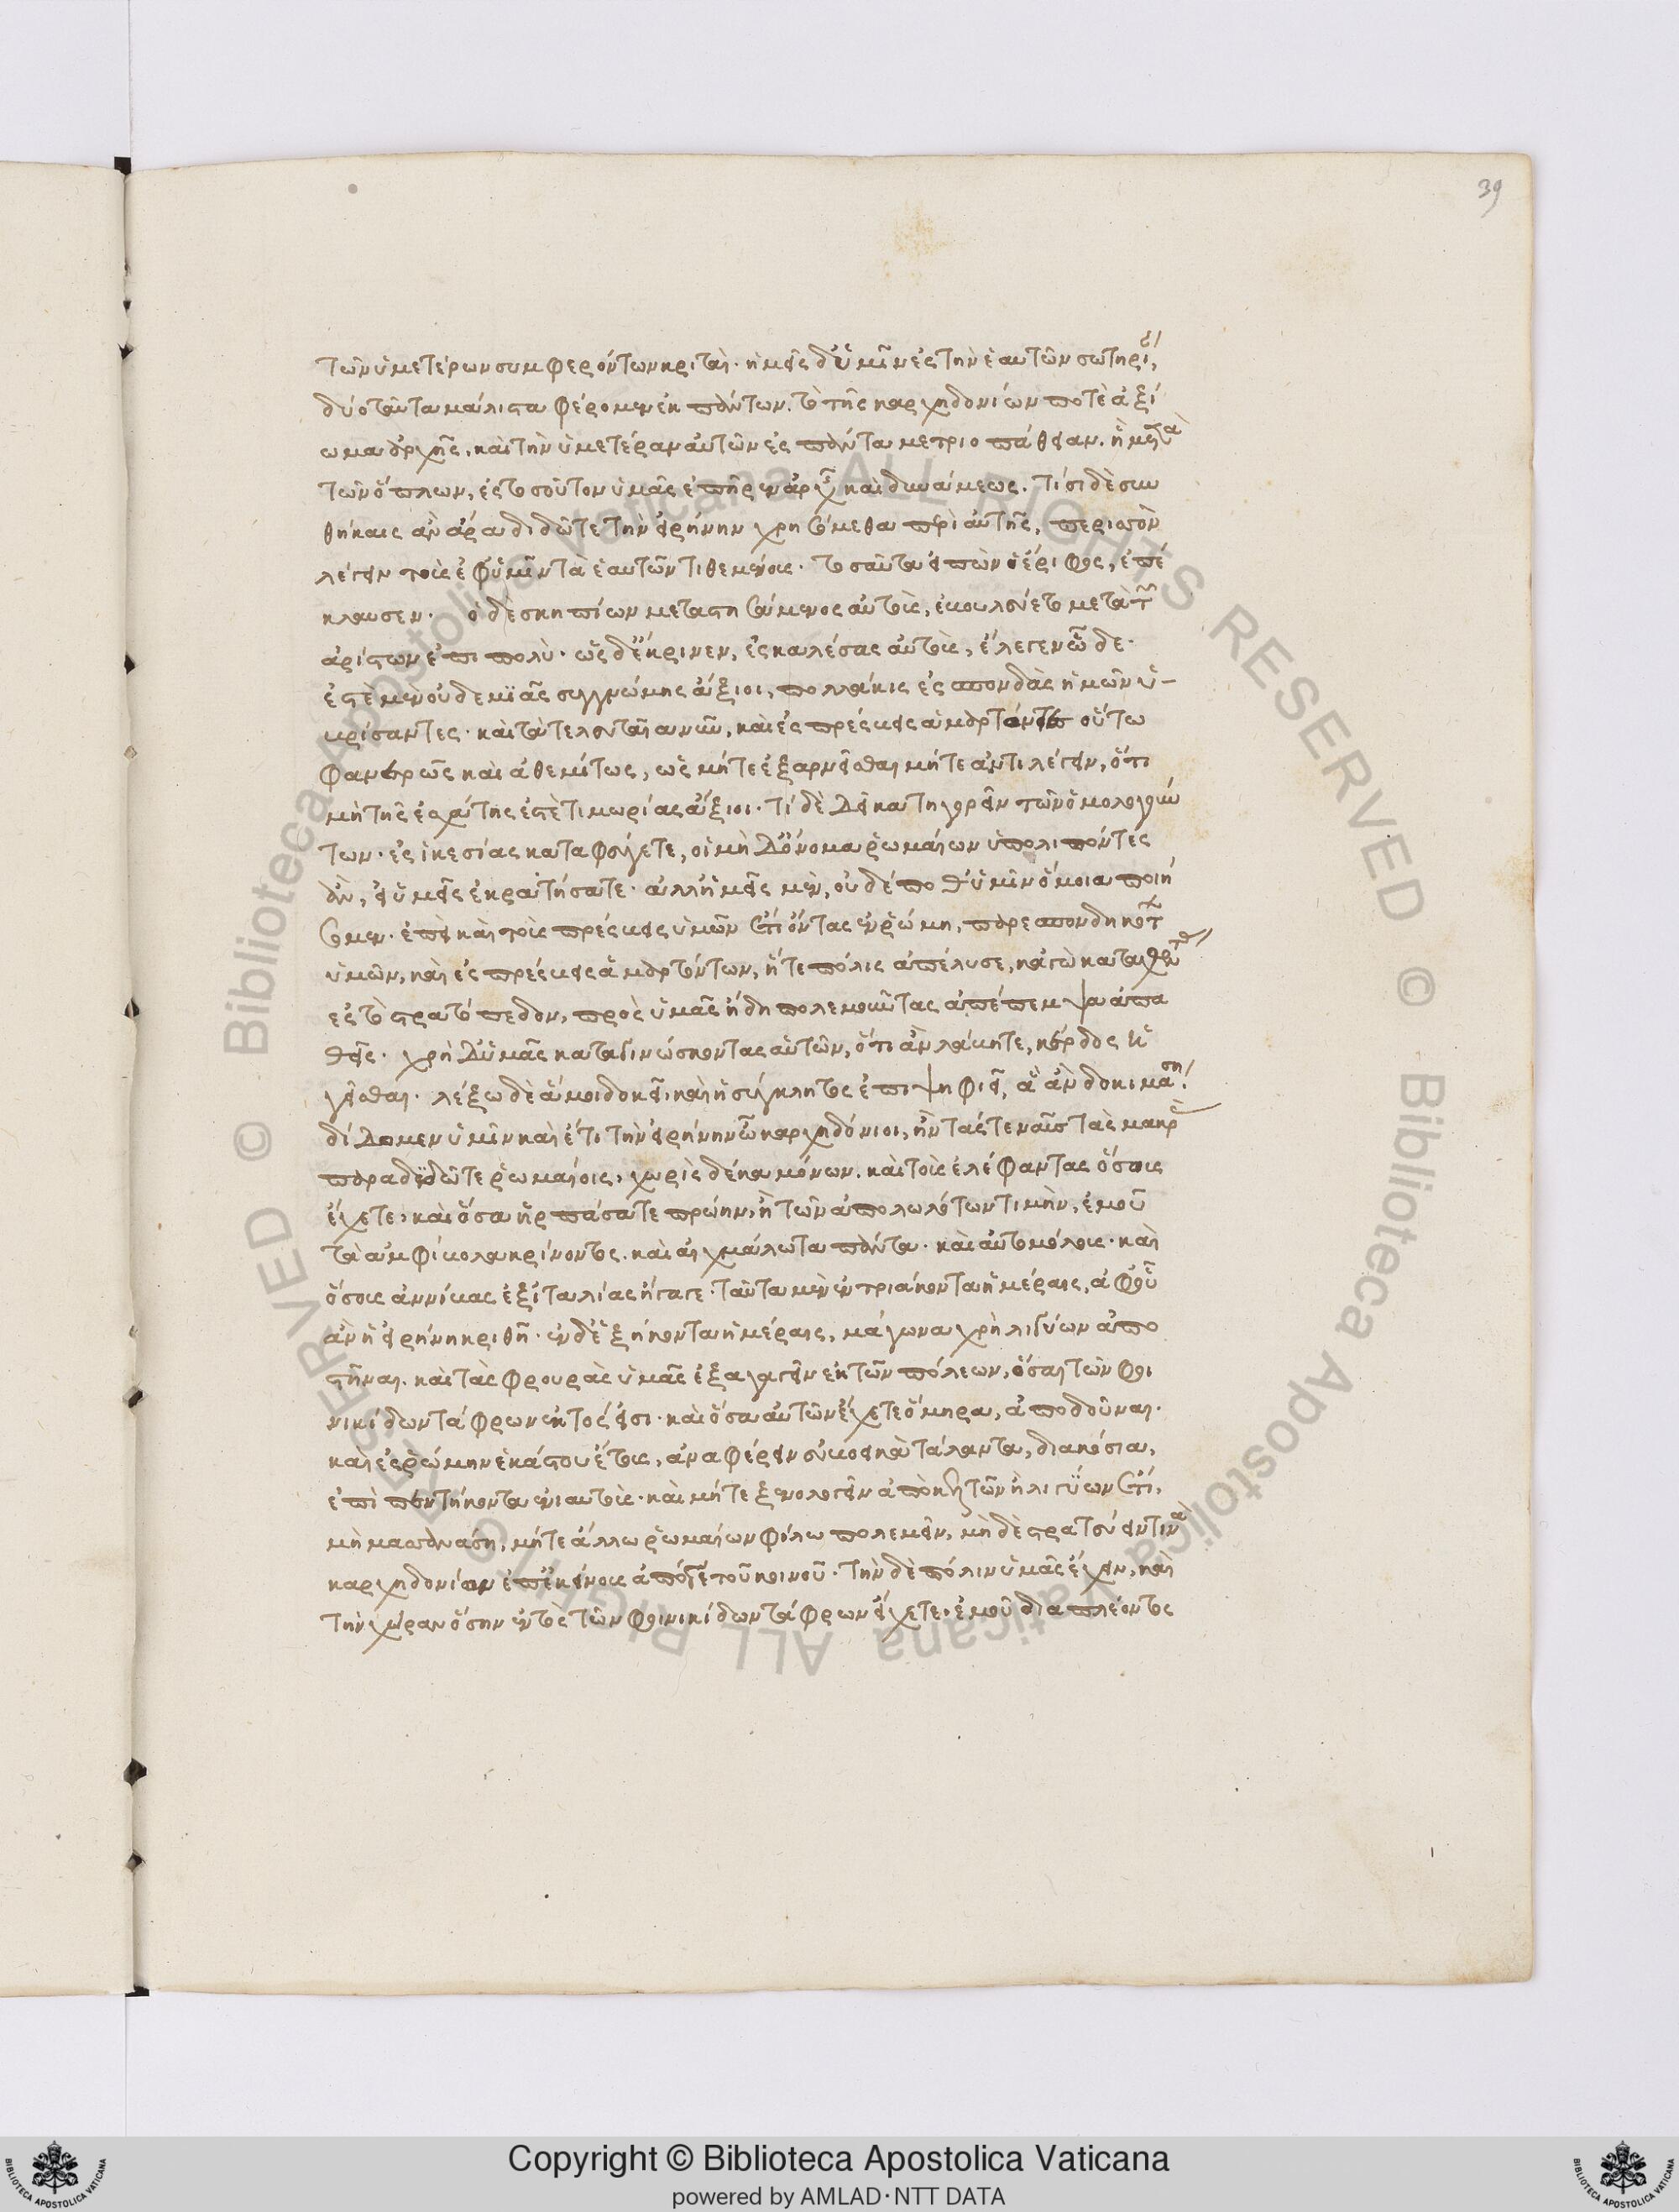 39
τῶν ὑμετέρων συμφερόντων κριταί· ἡμεῖς δ' ὑμῖν ἐς τὴν ἑαυτῶν σωτηρί,
δύο ταῦτα μάλιστα φέρομεν ἐκ πάντων. τὸ τῆς καρχηδονίων ποτὲ ἀξί
ωμα ἀρχῆς, καὶ τὴν ὑμετέραν αὐτῶν ἐς πάντα μετριοπάθειαν. ἣ μετὰ
τῶν ὅπλων, ἐς τοσοῦτον ὑμᾶς ἐπῆρεν ἀρχῆς καὶ δυνάμεως. τίσι δὲ συν
θήκαις ἂν ἄρα διδῶτε τὴν εἰρήνην χρησόμεθα περὶ αὐτῆς, περισσὸν
λέγειν τοὺς ἐφ' ὑμῖν τὰ ἑαυτῶν τιθεμένους. τοσαῦτα εἰπὼν ὁ ἔριφος, ἐπέ
κλαυσεν. ὁ δὲ σκηπίων μεταστησάμενος αὐτοὺς, ἐβουλεύετο μετὰ τῶν
ἀρίστων ἐπιπολύ. ὡς δ' ἔκρινεν, ἐσκαλέσας αὐτοὺς, ἔλεγεν ὧδε.
ἐστὲ μὲν οὐδεμϊᾶς συγγνώμης ἄξιοι, πολλάκις ἐς σπονδὰς ἡμῶν ὑ-
βρίσαντες. καὶ τὰ τελευταῖα νῦν, καὶ ἐς πρέσβεις ἁμαρτόντες οὕτω
φανερῶς καὶ ἀθεμίτως, ὡς μήτε ἐξαρνεῖσθαι μήτε ἀντιλέγειν, ὅτι
μὴ τῆς ἐσχάτης ἐστὲ τιμωρίας ἄξιοι. τί δὲ δεῖ κατηγορεῖν τῶν ὁμολογούν
των. ἐς ἱκεσίας καταφεύγετε, οἱ μηδ' ὄνομα ῥωμαίων ὑπολιπόντες
ἂν, εἰ ὑμεῖς ἐκρατήσατε. ἀλλ' ἡμεῖς μὲν, οὐδέποθ' ὑμῖν ὅμοια ποιή
σομεν. ἐπεὶ καὶ τοὺς πρέσβεις ὑμῶν ἔτι ὄντας ἐν ῥώμη, παρεσπονδηκότων
ὑμῶν, καὶ ἐς πρέσβεις ἁμαρτόντων, ἥ τε πόλις ἀπέλυσε, κἀγὼ καταχθέντας
ἐς τὸ στρατόπεδον, πρὸς ὑμᾶς ἤδη πολεμοῦντας ἀπέπεμψα ἀπα
θεῖς. χρὴ δ' ὑμᾶς καταγινώσκοντας αὑτῶν, ὅτι ἂν λάβητε, κέρδος ἡ
γεῖσθαι. λέξω δὲ ἅ μοι δοκεῖ, καὶ ἡ σύγκλητος ἐπιψηφιεῖ, ἃ ἂν δοκιμάση.
δίδομεν ὑμῖν καὶ ἔτι τὴν εἰρήνην ὦ καρχηδόνιοι, ἢν τάς τε ναῦς τὰς μακρὰς
παραδϊδῶτε ῥωμαίοις, χωρὶς δέκα μόνων. καὶ τοὺς ἐλέφαντας ὅσους
ἔχετε, καὶ ὅσα ἡρπάσατε πρώην, ἢ τῶν ἀπολωλότων τιμὴν, ἐμοῦ
τὰ ἀμφίβολα κρίνοντος. καὶ αἰχμάλωτα πάντα. καὶ αὐτομόλους. καὶ
ὅσους ἀννίβας ἐξ ἰταλίας ἤγαγε. ταῦτα μὲν ἐν τριάκοντα ἡμέραις, ἀφ' οὗ
ἂν ἡ εἰρήνη κριθῆ. ἐν δ' ἑξήκοντα ἡμέραις, μάγωνα χρὴ λιγύων ἀπο
στῆναι. καὶ τὰς φρουρὰς ὑμᾶς ἐξαγαγεῖν ἐκ τῶν πόλεων, ὅσαι τῶν φοι
νικίδων τάφρων ἐκτός εἰσι. καὶ ὅσα αὐτῶν ἔχετε ὅμηρα, ἀποδοῦναι.
καὶ ἐς ῥώμην ἑκάστου ἔτους, ἀναφέρειν εὐβοεικὰ τάλαντα, διακόσια,
ἐπὶ πεντήκοντα ἐνιαυτοὺς. καὶ μήτε ξενολογεῖν ἀπὸ κελτῶν ἢ λιγύων ἔτι,
μὴ μασσανάση, μήτε ἄλλω ῥωμαίων φίλω πολεμεῖν, μὴ δὲ στρατεύειν τινὰ
καρχηδονίων ἐπ' ἐκείνους ἀπό γε τοῦ κοινοῦ. τὴν δὲ πόλιν ὑμᾶς ἔχειν, καὶ
τὴν χώραν ὅσην ἐντὸς τῶν φοινικίδων τάφρων εἴχετε, ἐμοῦ διαπλέοντος
Copyright © Biblioteca Apostolica Vaticana
powered by AMLAD·NTT DATA